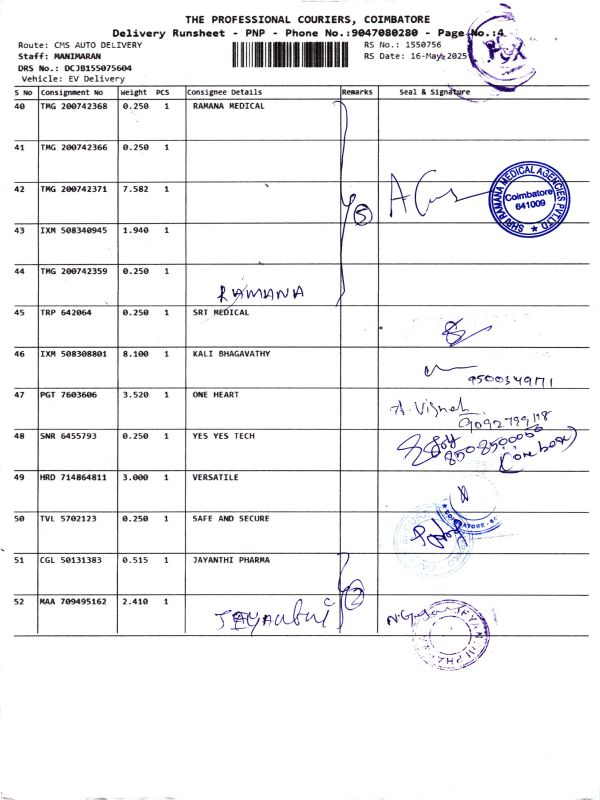 THE PROFESSIONAL COURIERS, COIMBATORE
Delivery Runsheet - PNP - Phone No.:9047080280 - Page No.:4
Route: CMS AUTO DELIVERY RS No.: 1550756
Staff: MANIMARAN RS Date: 16-May-2025
DRS No.: DCJB155075604
Vehicle: EV Delivery
S No Consignment No Weight PCS Consignee Details Remarks Seal & Signature
40 TMG 200742368 0.250 1 RAMANA MEDICAL
41 TMG 200742366 0.250 1
42 TMG 200742371 7.582 1
5
SHRI RAMANA MEDICAL AGENCIES PVT LTD
Coimbatore
641009
43 IXM 508340945 1.940 1
44 TMG 200742359 0.250 1
RAMANA
45 TRP 642064 0.250 1 SRT MEDICAL
46 IXM 508308801 8.100 1 KALI BHAGAVATHY
9500349171
47 PGT 7603606 3.520 1 ONE HEART
A. Vignesh
48 SNR 6455793 0.250 1 YES YES TECH
(one box)
49 HRD 714864811 3.000 1 VERSATILE
50 TVL 5702123 0.250 1 SAFE AND SECURE
COIMBATORE
51 CGL 50131383 0.515 1 JAYANTHI PHARMA
2
52 MAA 709495162 2.410 1